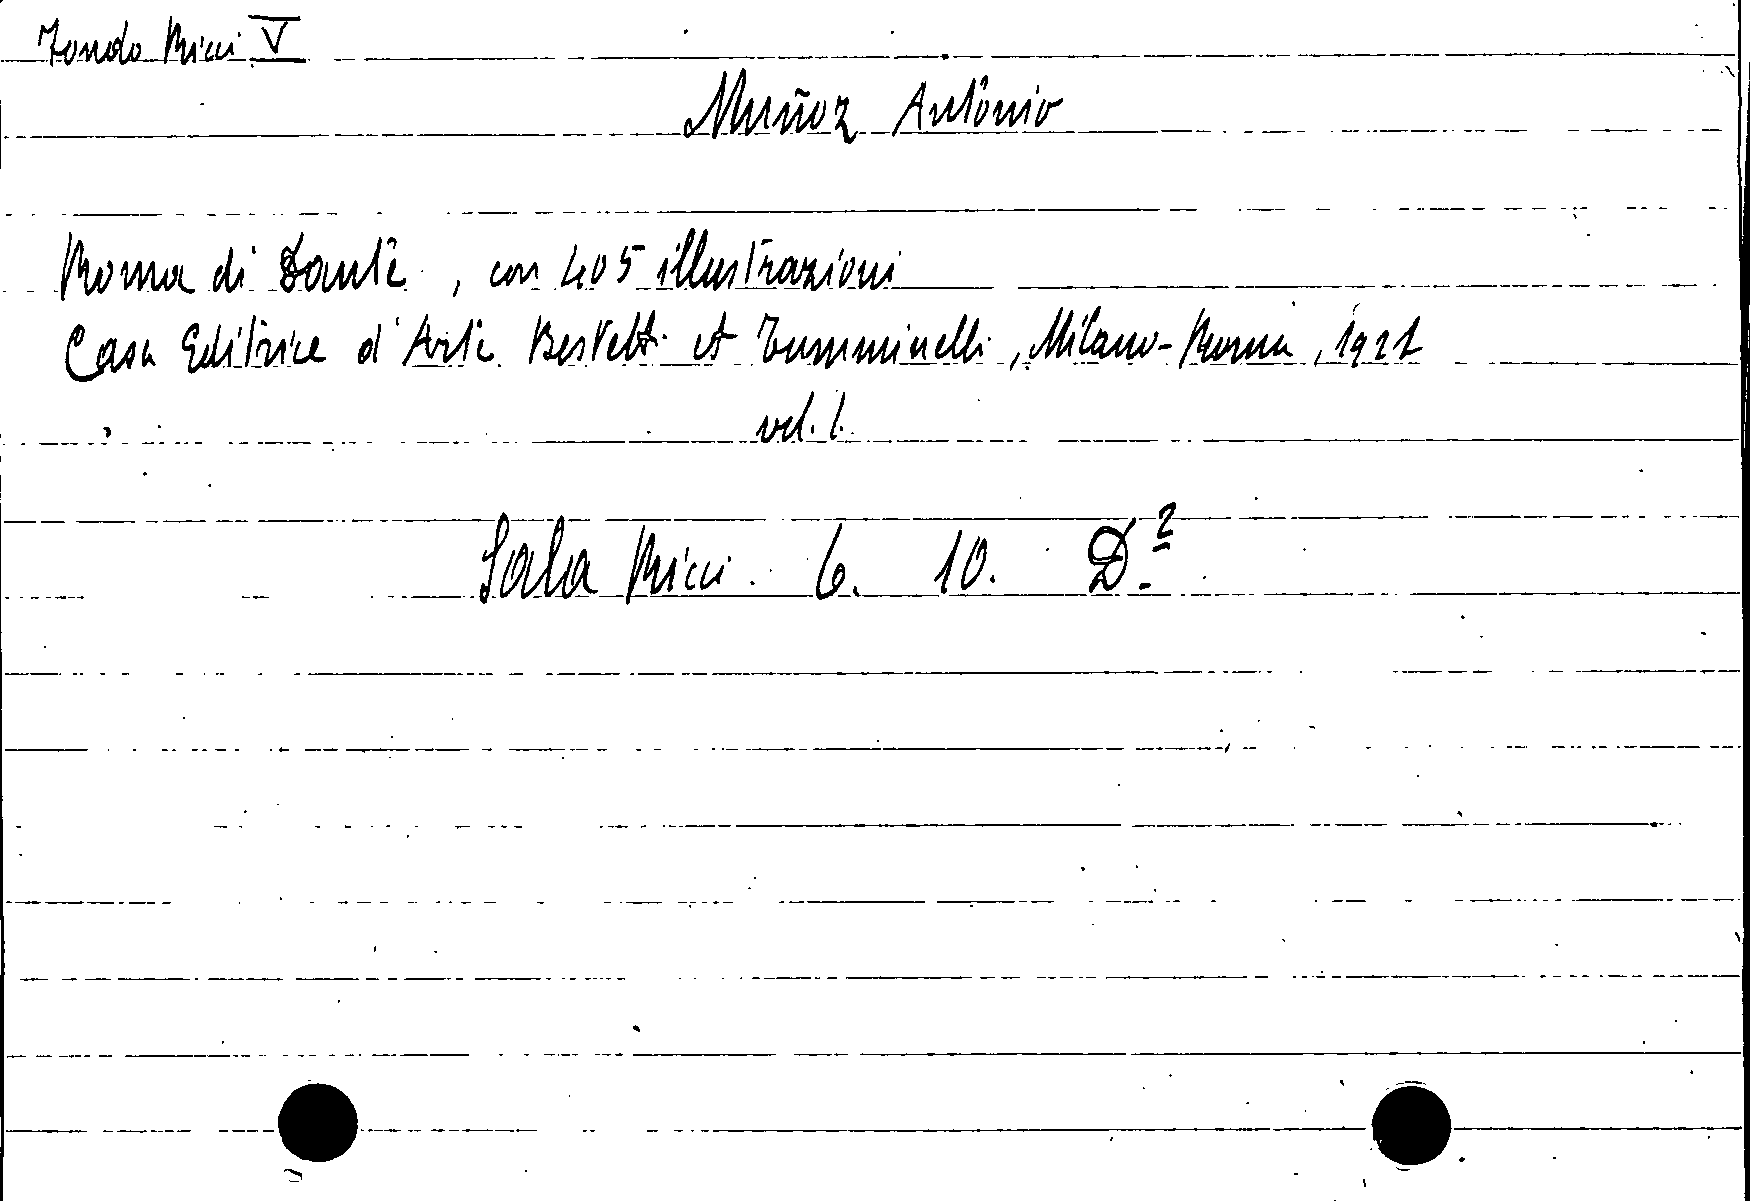 Fondo Ricci V
Muñoz Antonio
Roma di Dante, con 405 illustrazioni
Casa Editrice d'Arte Bestetti et Tumminelli, Milano-Roma, 1921
vol. 1.
Sala Ricci. 6. 10. D.²